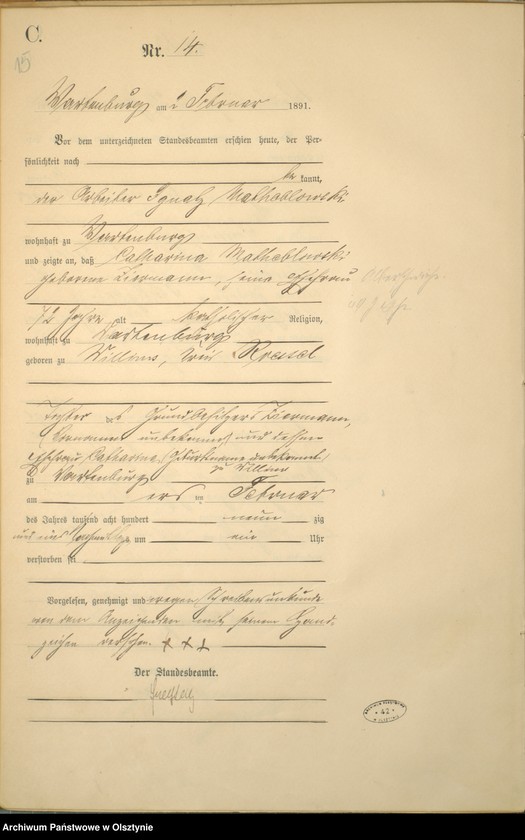 C.
15
Nr. 14.
Wartenburg am 2 Februar 1891.
Vor dem unterzeichneten Standesbeamten erschien heute, der Per-
sönlichkeit nach
be kannt,
der Arbeiter Ignatz Mathoblowski
wohnhaft zu Wartenburg
und zeigte an, daß Catharina Mathoblowski
geborene Ziermann, seine Ehefrau
72 Jahre alt katholischer Religion,
wohnhaft zu Wartenburg
geboren zu Willims, Kreis Roessel
Tochter des Grundbesitzers Ziermann,
Vorname unbekannt und dessen
Ehefrau Catharina, Geburtsname unbekannt,
zu Willims
zu Wartenburg
am ers ten Februar
des Jahres tausend acht hundert neun zig
und eins Vormittags um ein Uhr
verstorben sei
Vorgelesen, genehmigt und wegen Schreibensunkunde
von dem Anzeigenden mit seinem Hand-
zeichen versehen. + + +
Der Standesbeamte.
ARCHIWUM PAŃSTWOWE
* 42 *
W OLSZTYNIE
Archiwum Państwowe w Olsztynie